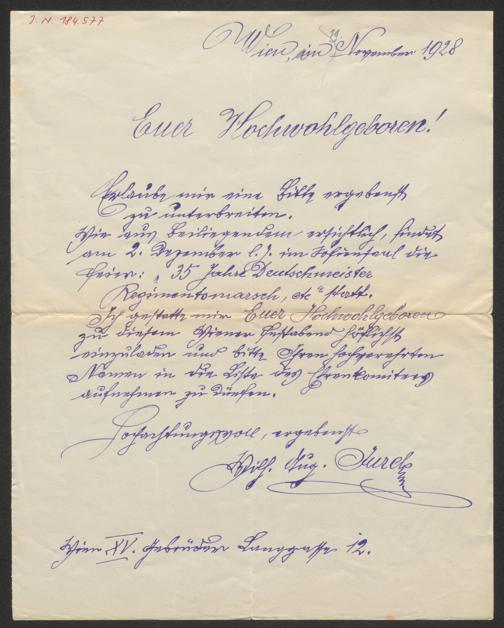 J. N. 184.577
Wien, im November 1928
Euer Hochwohlgeboren!
Erlaube mir eine Bitte ergebenst
zu unterbreiten.
Wie aus Beiliegendem ersichtlich, findet
am 2. Dezember l. J. im Sofiensaal die
Feier: „35 Jahre Deutschmeister
Regimentsmarsch, etc“ statt.
Ich gestatte mir Euer Hochwohlgeboren
zu diesem Wiener Festabend höflichst
einzuladen und bitte Ihren hochverehrten
Namen in die Liste des Ehrenkomitees
aufnehmen zu dürfen.
Hochachtungsvoll, ergebenst
Wilh. Aug. Jurek
Wien XV. Gebrüder Langgasse 12.